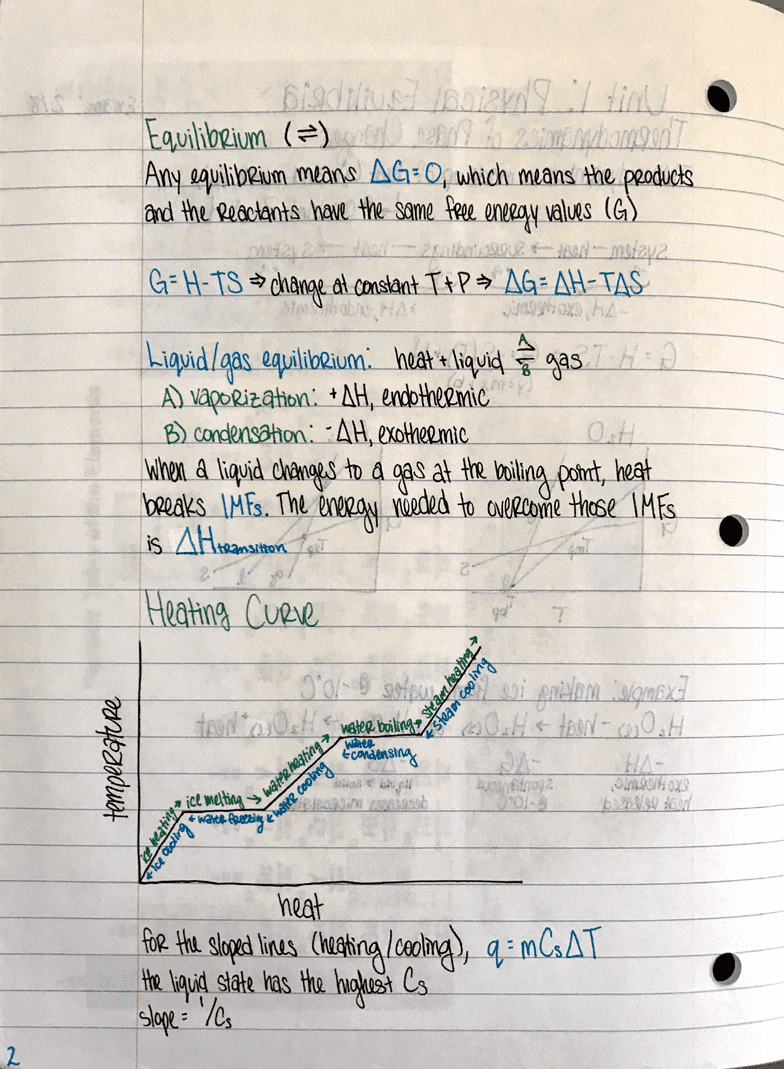 Equilibrium (⇌)
Any equilibrium means ΔG=0, which means the products
and the reactants have the same free energy values (G)
G=H-TS ⇒ change at constant T+P ⇒ ΔG=ΔH-TΔS
Liquid/gas equilibrium: heat + liquid A ⇌ B gas
A) vaporization: +ΔH, endothermic
B) condensation: -ΔH, exothermic
When a liquid changes to a gas at the boiling point, heat
breaks IMFs. The energy needed to overcome those IMFs
is ΔHtransition
Heating Curve
temperature
ice heating →
← ice cooling
ice melting →
← water freezing
water heating →
← water cooling
water boiling →
water
← condensing
steam heating →
← steam cooling
heat
for the sloped lines (heating/cooling), q=mCsΔT
the liquid state has the highest Cs
slope = 1/Cs
2